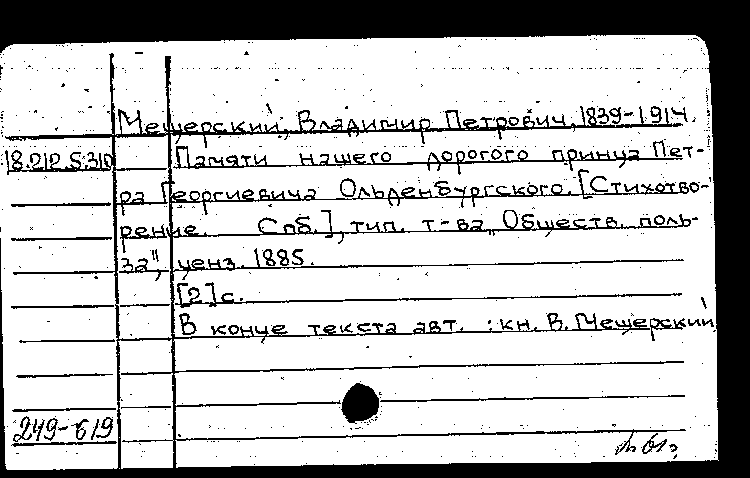 Мещерский, Владимир Петрович, 1839-1914.
18.212.5.310 Памяти нашего дорогого принца Пет-
ра Георгиевича Ольденбургского. [Стихотво-
рение. Спб.], тип. т-ва „Обществ. поль-
за", ценз. 1885.
[2] с.
В конце текста авт. : кн. В. Мещерский
249-619